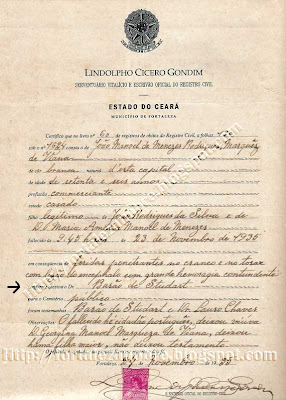 LINDOLPHO CICERO GONDIM
SERVENTUARIO VITALICIO E ESCRIVÃO OFICIAL DO REGISTRO CIVIL
ESTADO DO CEARÁ
MUNICIPIO DE FORTALEZA
Certifico que no livro nº 60 de registros de obitos do Registro Civil, a folhas
sob o nº 1924 consta o de João Manoel de Menezes Rodrigues, Marquêz
de Viana
de côr branca natural d'esta capital
de idade de setenta e seis annos
profissão commerciante
estado casado
filho legitimo de José Rodrigues da Silva e de
D. Maria Manoel de Menezes
23 de Novembro de 1935
em consequencia de feridas penetrantes no craneo e no torax
com lesão do encephalo com grande hemorragia
o attestado Dr. Barão de Studart
para o Cemiterio publico
foram Barão de Studart e Dr. Lauro Chaves
Observações: O fallecido he cidadão português, deixou viuva
D. Manoel Marqueza de Viana, deixou
filha maior, não deixou testamento.
Fortaleza, 27 de novembro de 1935